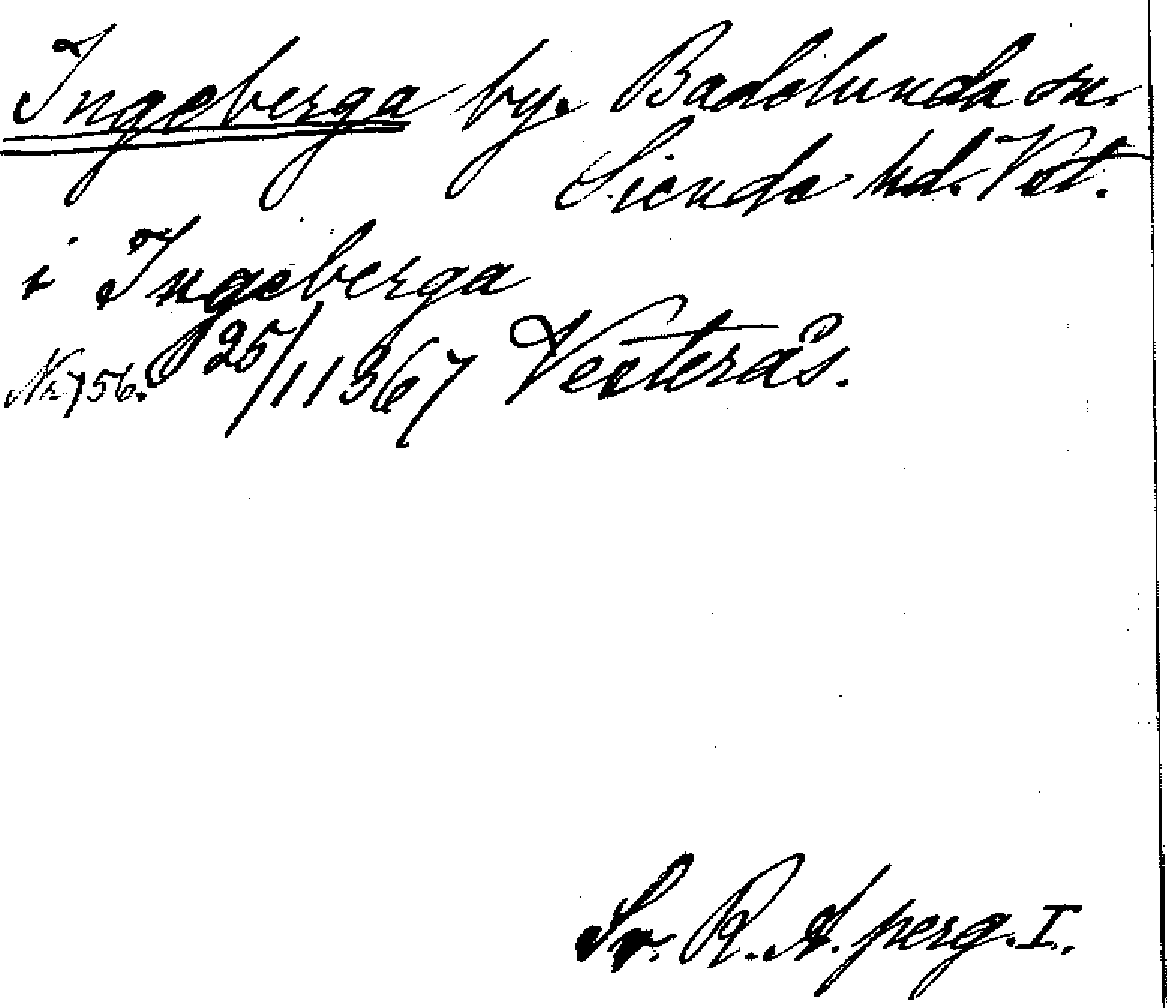 Ingeberga by. Badelunda sn.
Siende hd. Vst.
i Ingeberga
Nr 756. 25/11 1367 Vesterås.
Sv. R. A. perg. I.